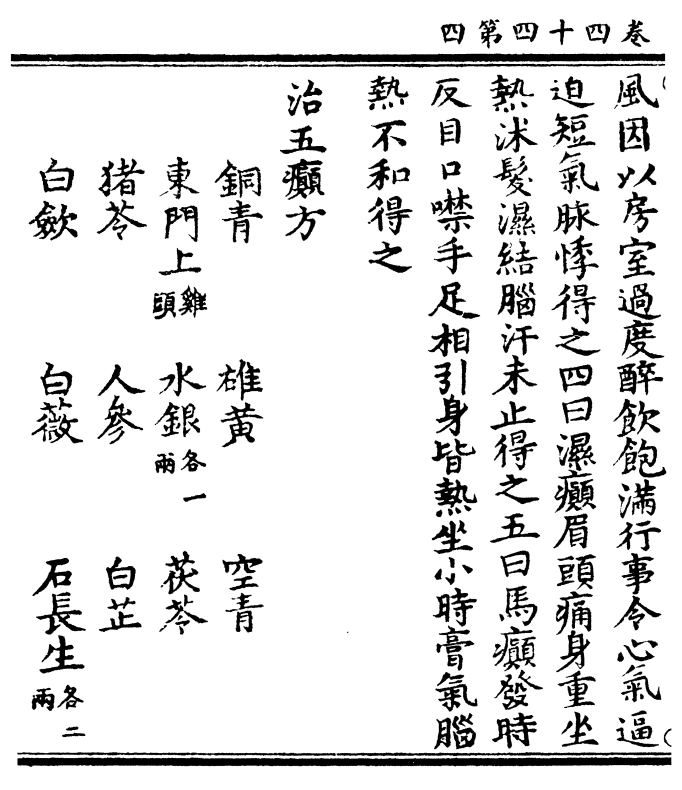 卷四十四第四
風因以房室過度醉飲飽滿行事令心氣逼
迫短氣脉悸得之四曰濕癲眉頭痛身重坐
熱沐髮濕結腦汗未止得之五曰馬癲發時
反目口噤手足相引身皆熱坐小時膏氣腦
熱不和得之
治五癲方
銅青 雄黃 空青
東門上雞頭 水銀各一兩 茯苓
猪苓 人參 白芷
白歛 白薇 石長生各二兩